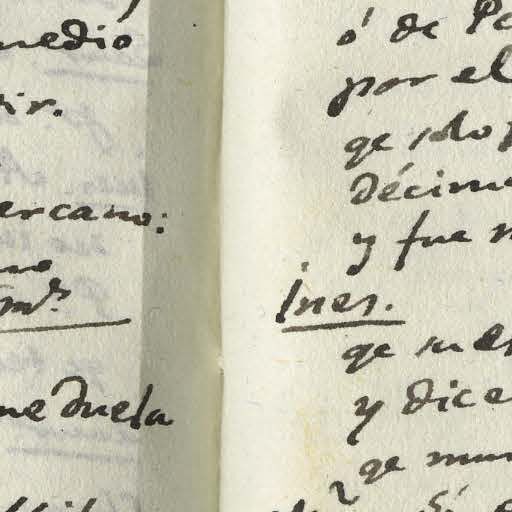 medió
ir.
ercano:
no
md.
me duela
ó de Pe
por el
qe solo p
décima
y fue m
Ines.
qe su es
y dice
qe mun